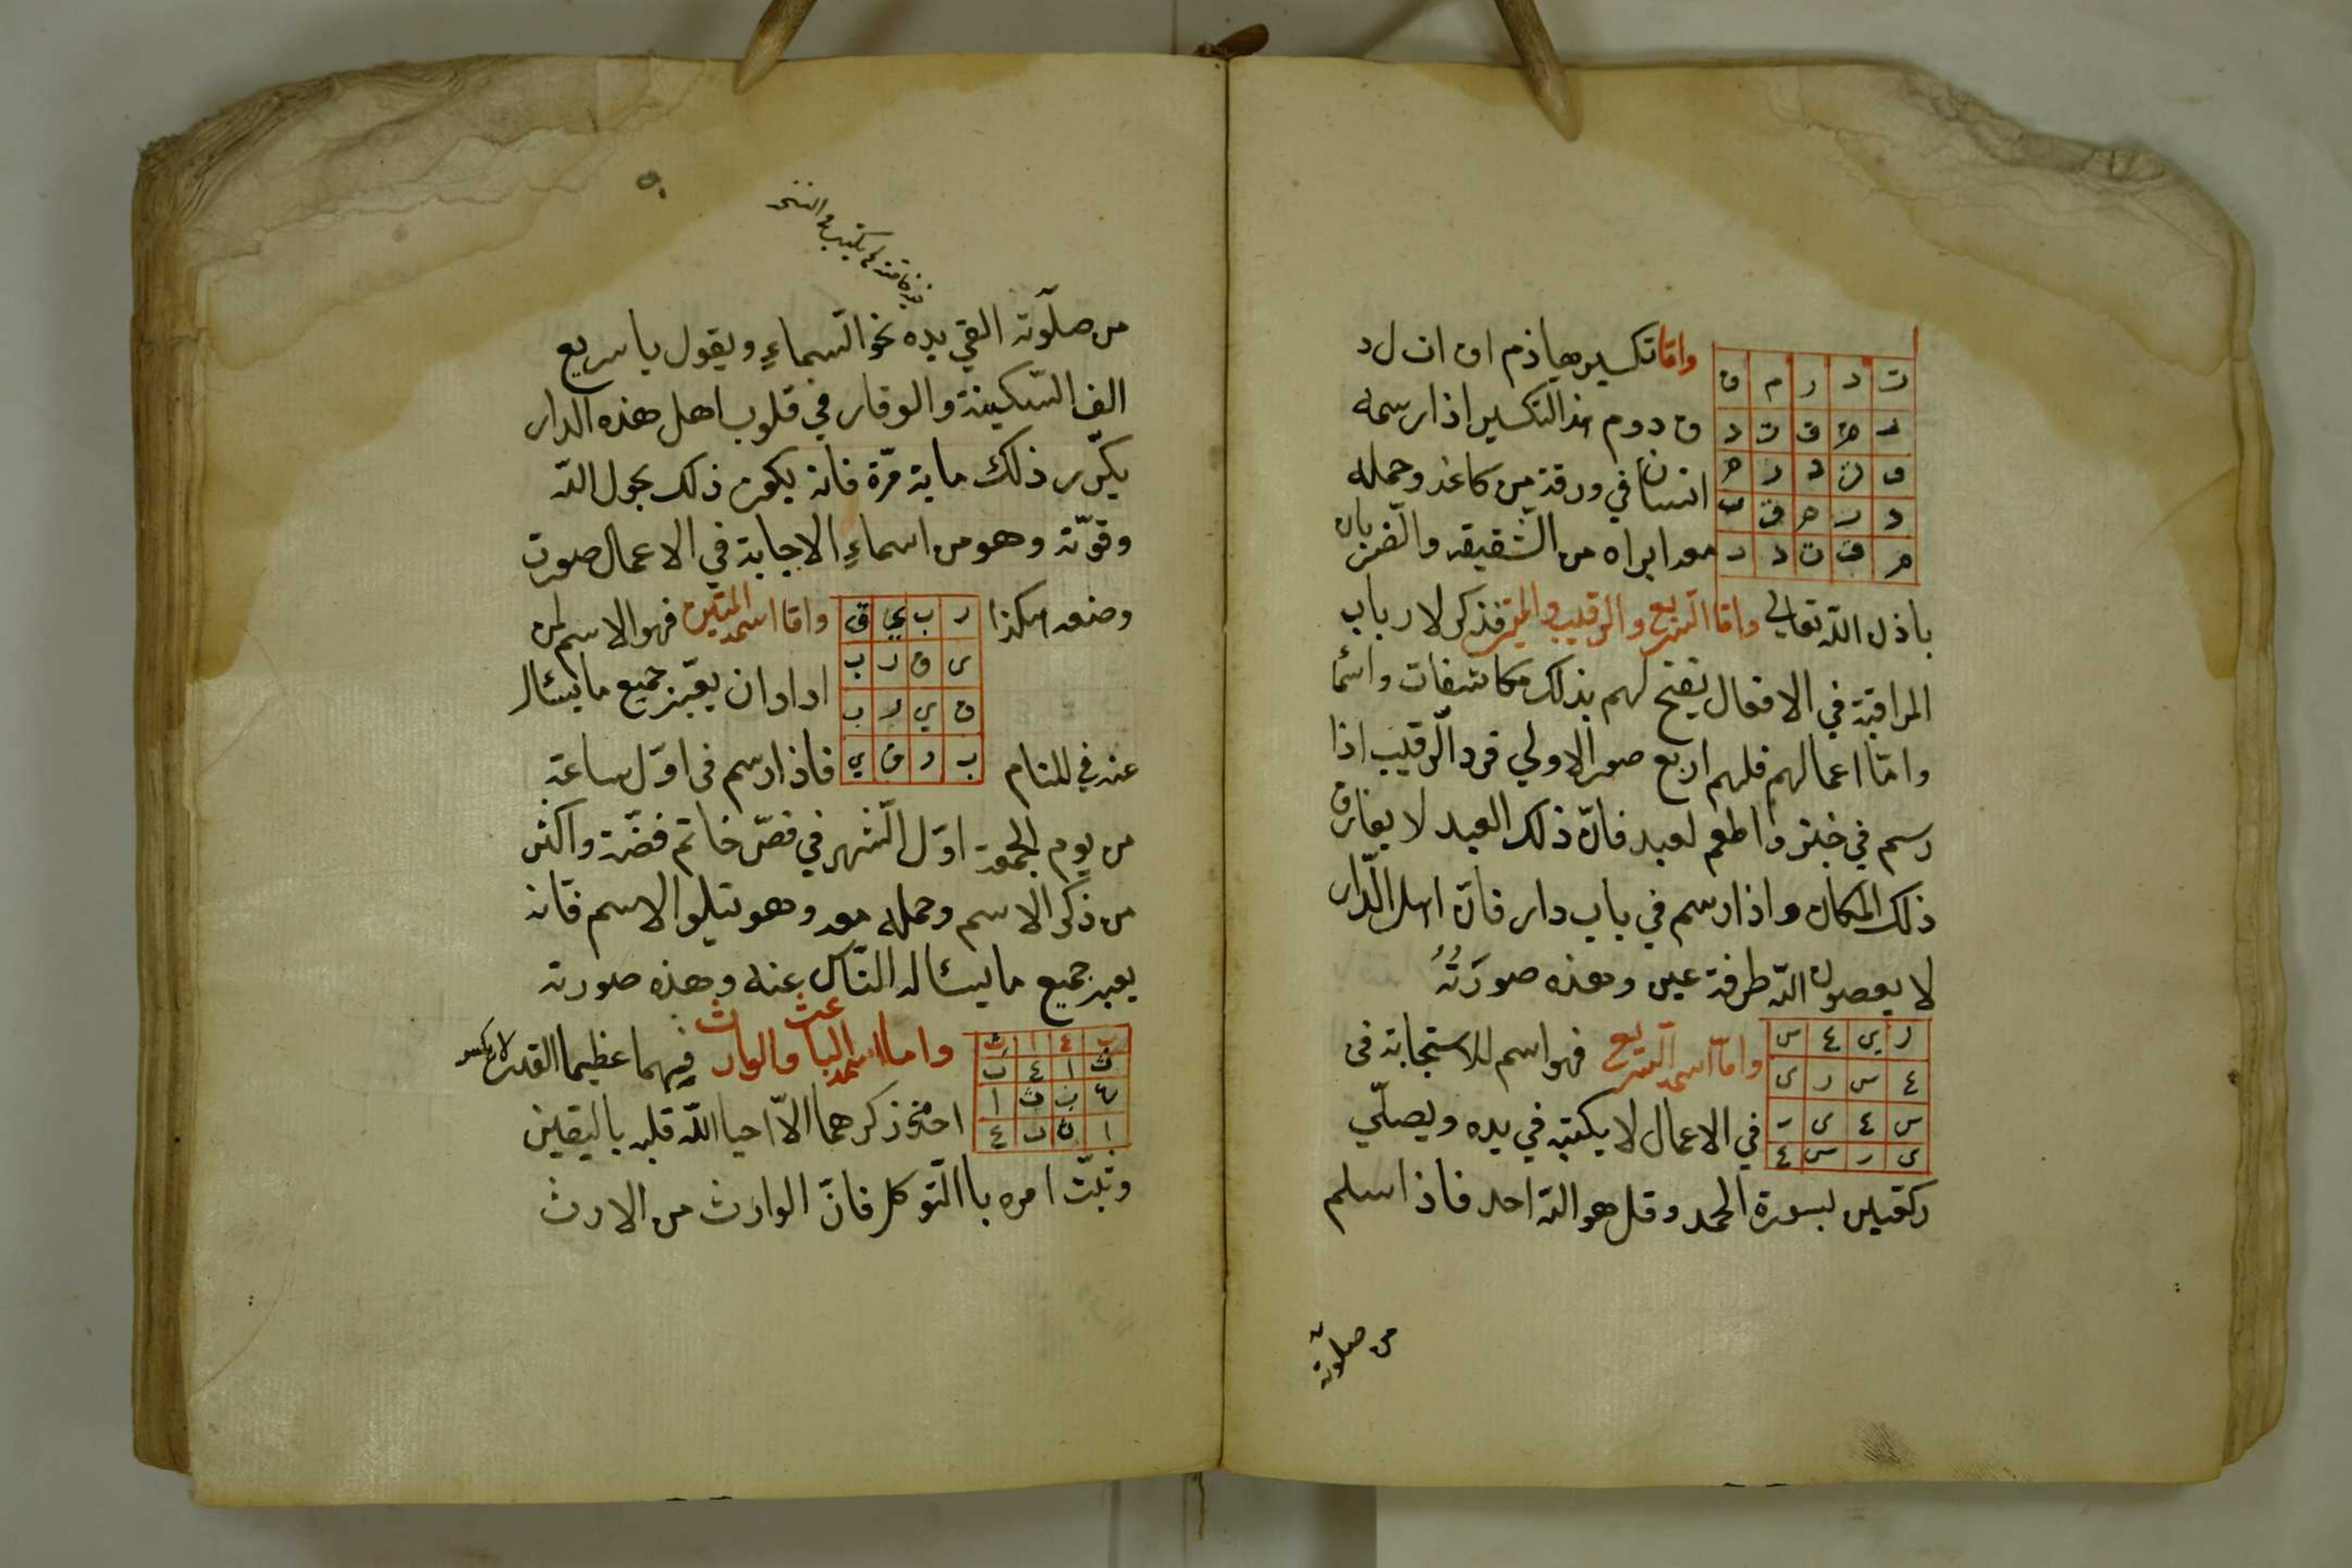 واما تكسيرها ذم ان ان ل د
ت د ر م ق
ق د و م هذا التكسير اذا رسمه
انسان في ورقة من كاغذ وحمله
معه ابراه من الشقيقه والضربان
باذن الله تعالى واما السريع والرقيب والمتين فذكر لارباب
المراقبة في الافعال يفتح لهم بذلك مكاشفات واسما
واما اعمالهم فلهم اربع صور الاولى فرد الرقيب اذا
رسم في خبز واطعم لعبد فان ذلك العبد لا يفارق
ذلك المكان واذا رسم في باب دار فان اهل الدار
لا يعصون الله طرفة عين وهذه صورَتُهُ
ر ي ٤ س
٤ س ر ى
س ٤ ى ر
ى ر س ٤
واما اسمه السريع فهو اسم للاستجابة فى
في الاعمال لا يكتبه في يده ويصلّي
ركعتين بسورة الحمد وقل هو الله احد فاذا سلم
من صلوته
من صلوته القي يده نحو السماء ويقول يا سريع
الف السكينة والوقار في قلوب اهل هذه الدار
يكرّر ذلك ماية مرّة فانه يكون ذلك بحول الله
وقوّته وهو من اسماء الاجابة في الاعمال صورت
وضعه هكذا
ر ب ي ق
ى ق ر ب
ق ي ر ب
ب ر ق ي
واما اسمه المتين فهو الاسم لمن
اراد ان يعبّر جميع ما يسئال
عنه في المنام فاذا رسم فى اوّل ساعة
من يوم الجمعة اوّل الشهر في فصّ خاتم فضّة واكثر
من ذكر الاسم وحمله معه وهو يتلو الاسم فانه
يعبر جميع ما يسئاله الناس عنه وهذه صورته
ب ٤ ا ث
ث ا ٤ ب
٤ ب ث ا
ا ث ب ٤
واما اسمه الباعث والوارث فهما عظيما القدر لا يكسر
احد ذكرهما الاّ احيا الله قلبه باليقين
وثبّت امره باالتوكل فانّ الوارث من الارث